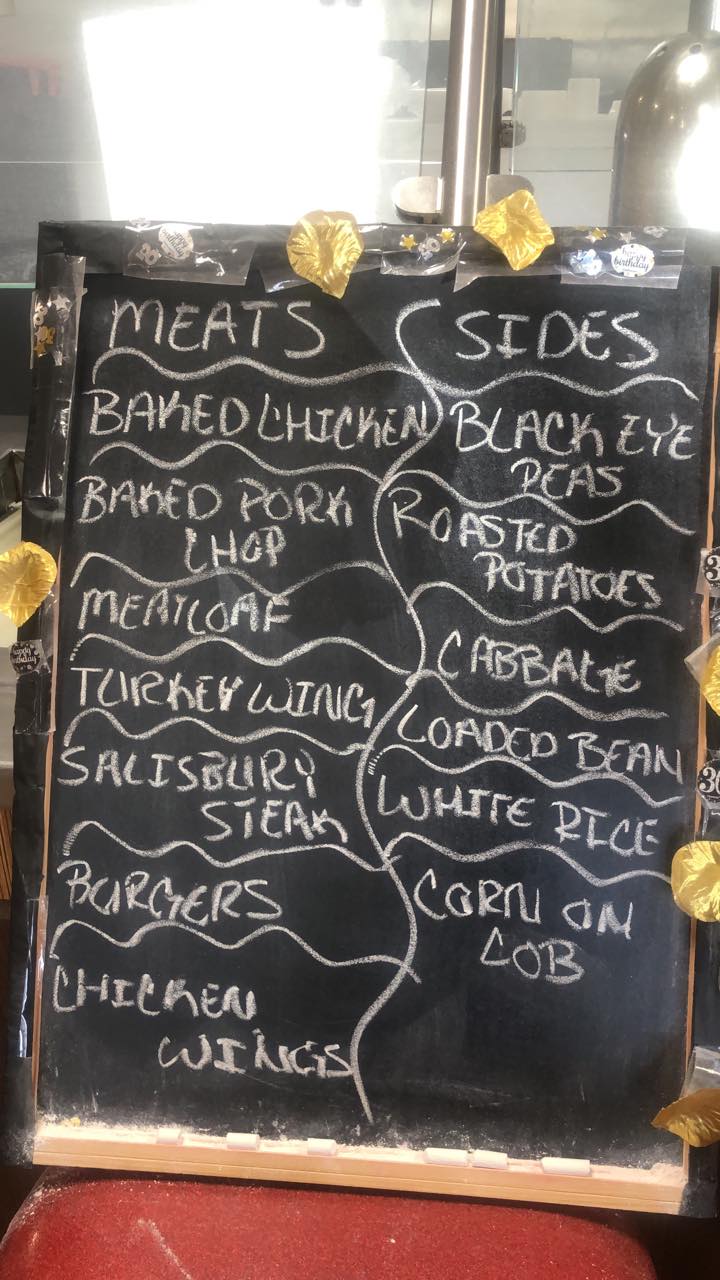 MEATS
BAKED CHICKEN
BAKED PORK
CHOP
MEATLOAF
TURKEY WING
SALISBURY
STEAK
BURGERS
CHICKEN
WINGS
SIDES
BLACK EYE
PEAS
ROASTED
POTATOES
CABBAGE
LOADED BEAN
WHITE RICE
CORN ON
COB
happy
birthday
happy
birthday
30